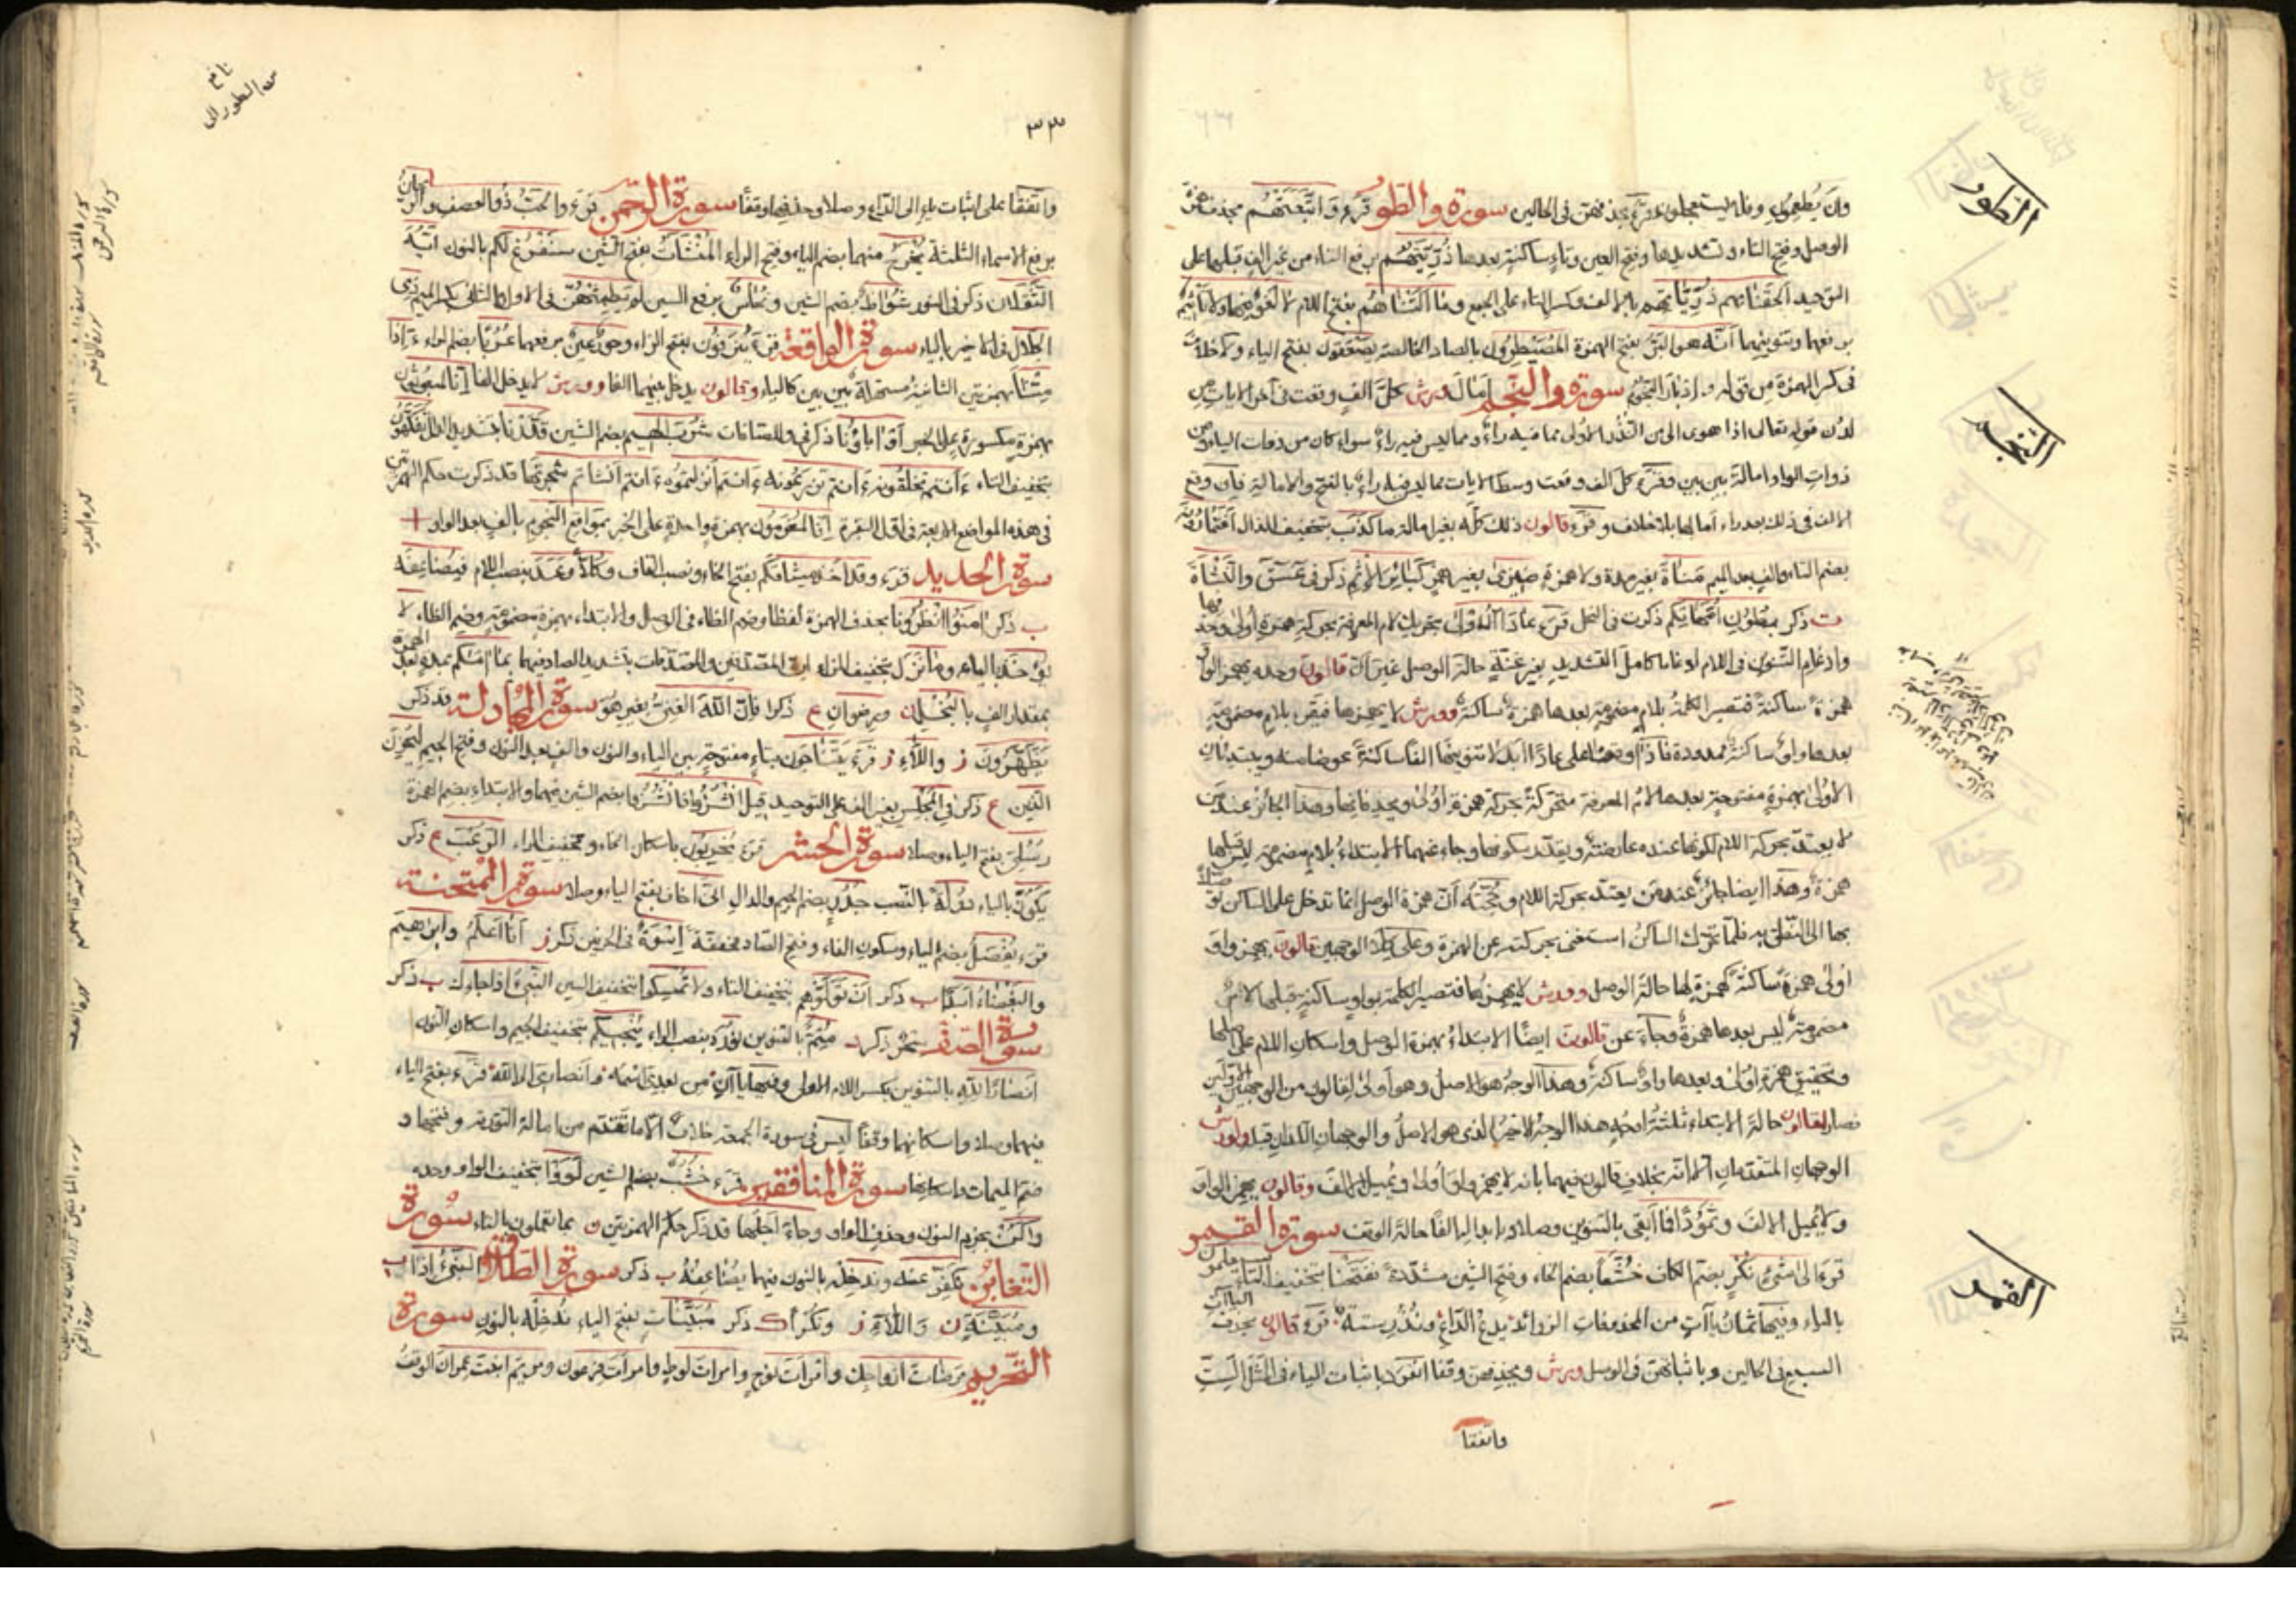 وان يطعمون وفلا يستعجلون قرء بحذفهن في الحالين سورة والطور قرء واتبعتهم بحذف همزة
الوصل وفتح التاء وتشديدها وفتح العين وتاء ساكنة بعدها ذريتهم برفع التاء من غير الف قبلها على
التوحيد الحقنا بهم ذرياتهم بالالف وكسر التاء على الجمع وما التناهم بفتح اللام لا لغو فيها ولا تأثيم
برفعهما وتنوينهما انه هو البر بفتح الهمزة المصيطرون بالصاد الخالصة يصعقون بفتح الياء ولا خلاف
في كسر الهمزة من قوله وادبار النجوم سورة والنجم امال ورش كل الف وقعت في آخر الايات من
لدن قوله تعالى اذا هوى الى من النذر الاولى مما فيه راء ومما ليس فيه راء سواء كان من ذوات الياء او من
ذوات الواو امالة بين بين وقرء كل الف وقعت وسط الايات مما ليس فيه راء بالفتح والامالة فان وقع
الالف في ذلك بعد راء امالها بلا خلاف وقرء قالون ذلك كله بغير امالة ما كذب بتخفيف الذال افتمارونه
بضم التاء والف بعد الميم مناة بغير مدة ولا همزة ضيزى بغير همز كبائر الاثم ذكر في عسق والنشأة
ت ذكر بطون امهاتكم ذكرت في النحل قرء عادا الاولى بتحريك لام المعرفة بحركة همزة اولى وحذفها
وادغام التنوين في اللام ادغاما كامل التشديد بغير غنة حالة الوصل غير ان قالون وحده يهمز الواو
همزة ساكنة فتصير الكلمة بلام مضمومة بعدها همزة ساكنة وورش لا يهمزها فيقرء بلام مضمومة
بعدها واو ساكنة ممدودة فاذا وقفا على عادا ابدلا تنوينها الفا ساكنة عوضا منه ويبتدئان
الاولى بهمزة مفتوحة بعدها لام المعرفة متحركة بحركة همزة اولى وبحذفانها وهذا الجائز عند من
لا يعتد بحركة اللام لكونها عنده عارضة ويقدر سكونها وجاء عنهما الابتداء بلام مضمومة ليس قبلها
همزة وهذا ايضا جائز عند من يعتد بحركة اللام وحجته ان همزة الوصل انما تدخل على الساكن توصلا
بها الى النطق به فلما تحرك الساكن استغنى بحركته عن الهمزة وعلى كلا الوجهين قالون يهمز واو
اولى همزة ساكنة كهمزه لها حالة الوصل وورش لا يهمزها فتصير الكلمة بواو ساكنة قبلها لام
مضمومة ليس بعدها همزة وجاء عن قالون ايضا الابتداء بهمزة الوصل واسكان اللام على اصلها
وتحقيق همزة اولى وبعدها واو ساكنة وهذا الوجه هو الاصل وهو اولى لقالون من الوجهين الاولين
فصار لقالون حالة الابتداء ثلثة اوجه هذا الوجه الاخير الذي هو الاصل والوجهان اللذان قبله ولورش
الوجهان المتقدمان الا انه بخلاف قالون فيهما بانه لا يهمز واو اولى ويميل الالف وقالون يهمز الواو
ولا يميل الالف وثمودا فما ابقى بالتنوين وصلا وابدالها الفا حالة الوقف سورة القمر
قرء الى شئ نكر بضم الكاف خشعا بضم الخاء وفتح الشين مشددة ففتحنا بتخفيف التاء سيعلمون
بالياء وفيها ثمان ياآت من المحذوفات الزوائد يدع الداع ونذر ستة قرء قالون بحذف
السبع في الحالين وباثباتهن في الوصل ورش وبحذفهن وقفا انفرد باثبات الياء في الستة
واتفقا
الطور
النجم
القمر
٣٣
واتفقا على اثبات ياء الى الداع وصلا وحذفها وقفا سورة الرحمن قرء والحب ذو العصف والريحان
برفع الاسماء الثلثة يخرج منهما بضم الياء وفتح الراء المنشآت بفتح الشين سنفرغ لكم بالنون ايه
الثقلان ذكر في النور شواظ بضم الشين ونحاس برفع السين لم يطمثهن في الاول والثاني بكسر الميم ذي
الجلال في الاخير بالياء سورة الواقعة قرء ينزفون بفتح الزاء وحور عين برفعهما عربا بضم الراء ءاذا
متنا بهمزتين الثانية مسهلة بين بين كالياء وقالون يدخل بينهما الفا وورش لا يدخل الفا انا لمبعوثون
بهمزة مكسورة على الخبر او اباؤنا ذكر في والصافات شرب الهيم بضم الشين قدرنا بتشديد الدال تفكهون
بتخفيف التاء ءانتم تخلقونه ءانتم تزرعونه ءانتم انزلتموه ءانتم انشاتم شجرتها قد ذكرت حكم الهمزتين
في هذه المواضع الاربعة في اول البقرة انا لمغرمون بهمزة واحدة على الخبر بمواقع النجوم بالف بعد الواو
سورة الحديد قرء وقد اخذ ميثاقكم بفتح الخاء ونصب القاف وكلا وعد بنصب اللام فيضاعفه
ب ذكر امنوا انظرونا بحذف الهمزة لفظا وضم الظاء في الوصل والابتداء بهمزة مضمومة وضم الظاء لا
يؤخذ بالياء وما نزل بتخفيف الزاء ان المصدقين والمصدقات بتشديد الصاد فيهما بما اتاكم بمد بعد الهمزة
بمقدار الف بالبخل ن ورضوان ع ذكرا فان الله الغني بغير هو سورة المجادلة قد ذكر
يظهرون ز واللائ ز قرء يتناجون بتاء مفتوحة بين الياء والنون والف بعد النون وفتح الجيم ليحزن
الذين ع ذكر في المجلس بغير الف على التوحيد قيل انشزوا فانشزوا بضم الشين فيهما والابتداء بضم الهمزة
رسلي بفتح الياء وصلا سورة الحشر قرء يخربون باسكان الخاء وتخفيف الراء الرعب ع ذكر
يكون بالياء دولة بالنصب جدر بضم الجيم والدال اني اخاف بفتح الياء وصلا سورة الممتحنة
قرء يفصل بضم الياء وسكون الفاء وفتح الصاد مخففة اسوة في الحرفين ذكر ز انا اعلم وابرهيم
والبغضاء ابدا ب ذكر ان تولوهم بتخفيف التاء ولا تمسكوا بتخفيف السين النبي اذا جاءك ب ذكر
سورة الصف سحر ذكر متم بالتنوين نوره بنصب الراء تنجيكم بتخفيف الجيم واسكان النون
انصارا لله بالتنوين بكسر اللام الاولى وفيها ياآن من بعدي اسمه وانصاري الى الله قرء بفتح الياء
فيهما وصلا واسكانهما وقفا ليس في سورة الجمعة خلاف الا ما تقدم من امالة التورية وفتحها و
ضم الميمات واسكانها سورة المنافقين قرء خشب بضم الشين لووا بتخفيف الواو وحده
واكن بجزم النون وحذف الواو وجاء اجلها قد ذكر حكم الهمزتين ن بما تعملون بالتاء سورة
التغابن نكفر عنه وندخله بالنون فيهما يضاعفه ب ذكر سورة الطلاق النبي اذا ب
ومبينة ن واللائ ز ونكرا ك ذكر مبينات بفتح الياء ندخله بالنون سورة
التحريم مرضات ازواجك وامرات نوح وامرات لوط وامرات فرعون ومريم ابنت عمران الوقف